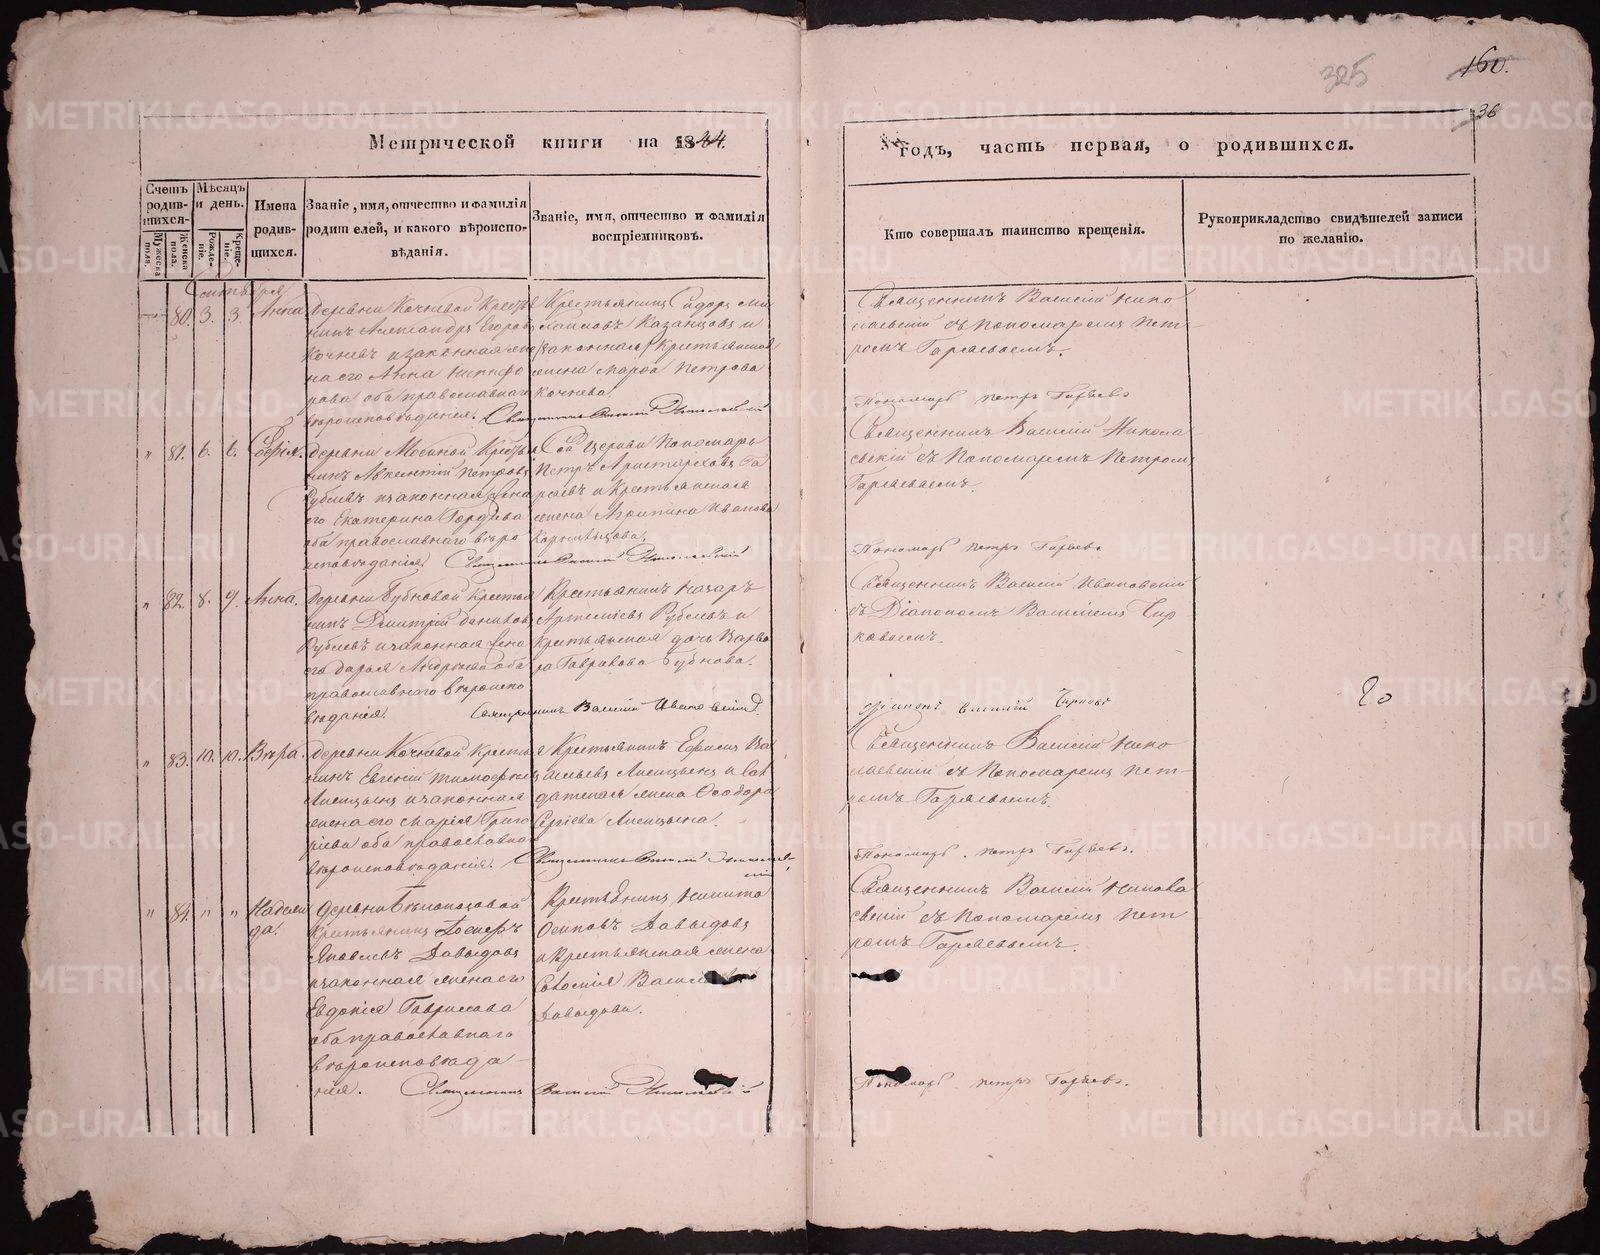 325
160.
36
Метрической книги на 1844.
годъ, часть первая, о родившихся.
Счетъ родив-шихся.
Мужеска пола.
Женска пола.
Мѣсяцъ и день.
Рожде-ніе.
Креще-ніе.
Имена родив-шихся.
Званіе, имя, отчество и фамилія
родителей, и какого вѣроиспо-
вѣданія.
Званіе, имя, отчество и фамилія
воспріемниковъ.
Кто совершалъ таинство крещенія.
Рукоприкладство свидѣтелей записи
по желанію.
80. 3. 3. Анна
Деревни Кочневой Кресть
нинъ Александръ Егоровъ
Кочневъ и законная же
на его Анна Никифо
рова оба православнаго
вѣроисповѣданія.
Крестьянинъ Сидоръ Ми
хайловъ Казанцовъ и
жена Марфа Петрова
Кочнева.
Священникъ Василій Николаевскій
Священникъ Василій Нико
лаевскій съ Пономаремъ Пет-
ромъ Гаряевымъ.
Пономарь Петръ Гаряевъ
81. 6. 6. Софія.
Деревни Мосиной Кресть
нинъ Авксентій Петровъ
Рублевъ и законная жена
его Екатерина Гордѣева
оба православнаго вѣро
исповѣданія.
Той Церкви Пономарь
Петръ Аристарховъ Га
ряевъ и Крестьянская
жена Агрипина Иванова
Карнильцова.
Священникъ Василій Николаевскій
Священникъ Василій Никола
евскій съ Пономаремъ Петромъ
Гаряевымъ.
Пономарь Петръ Гаряевъ
82. 8. 9. Анна.
Деревни Бубновой Крестья
нинъ Дмитрій Даниловъ
Рублевъ и законная жена
его Дарья Андреева оба
православнаго вѣроиспо
вѣданія.
Крестьянинъ Назаръ
Артемьевъ Рублевъ и
крестьянская дочь Варва
ра Гаврилова Бубнова.
Священникъ Василій Ивановскій
Священникъ Василій Ивановскій
съ Діакономъ Василіемъ Чир
ковымъ.
Діаконъ Василій Чирковъ
20
83. 10. 10. Вѣра.
Деревни Кочневой Крестья
нинъ Евгеній Тимофѣевъ
Лисицынъ и законная
жена его Марія Григо
рьева оба православнаго
вѣроисповѣданія.
Крестьянинъ Ефимъ Ва
сильевъ Лисицынъ и Сол
датская жена Ѳеодора
Сергіева Лисицына.
Священникъ Василій Николаев-
скій
Священникъ Василій Нико
лаевскій съ Пономаремъ Пет-
ромъ Гаряевымъ.
Пономарь Петръ Гаряевъ.
" 84. " " Надежда.
Деревни Бѣлоносовой
Крестьянинъ Іосифъ
Яковлевъ Давыдовъ
и законная жена его
Евдокія Гаврилова
оба православнаго
вѣроисповѣда-
нія.
Крестьянинъ Никита
Осиповъ Давыдовъ
и Крестьянская жена
Давыдова.
Священникъ Василій Николаевскій
Священникъ Василій Никола
евскій съ Пономаремъ Пет
ромъ Гаряевымъ.
Пономарь Петръ Гаряевъ.
METRIKI.GASO-URAL.RU